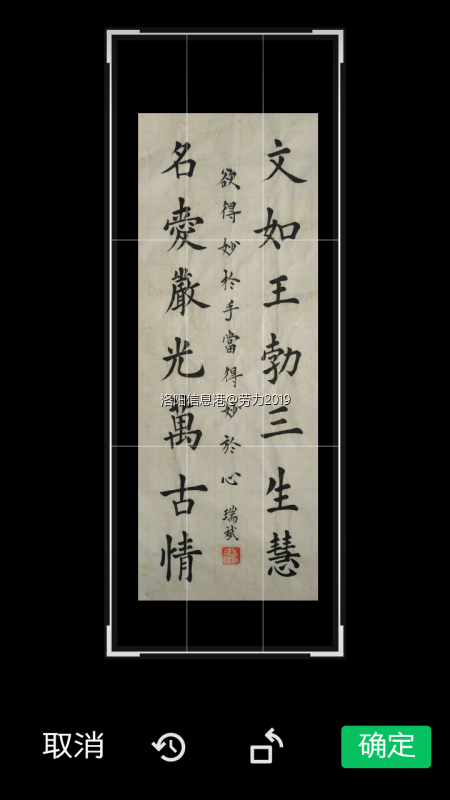 文如王勃三生慧
欲得妙於手當得妙於心
瑞斌
名愛嚴光萬古情
洛阳信息港@劳力2019
取消
确定